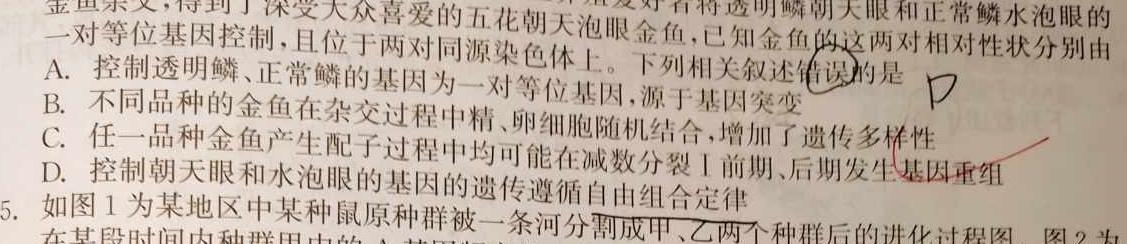 金鱼杂交,得到了深受大众喜爱的五花朝天泡眼金鱼,已知金鱼的这两对相对性状分别由
爱好者将透明鳞朝天眼和正常鳞水泡眼的
一对等位基因控制,且位于两对同源染色体上。下列相关叙述错误的是
D
A. 控制透明鳞、正常鳞的基因为一对等位基因,源于基因突变
B. 不同品种的金鱼在杂交过程中精、卵细胞随机结合,增加了遗传多样性
C. 任一品种金鱼产生配子过程中均可能在减数分裂Ⅰ前期、后期发生基因重组
D. 控制朝天眼和水泡眼的基因的遗传遵循自由组合定律
5. 如图1为某地区中某种鼠原种群被一条河分割成甲、乙两个种群后的进化过程图,图2为
在某段时间内种群甲中的